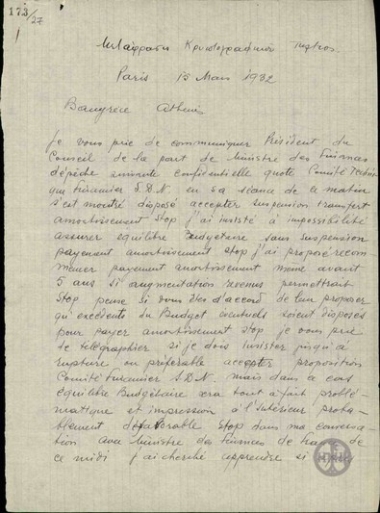 173/27
Μετάφρασις Κρυπτογραφικού
Paris 15 Mars 1932
Bangrece Athènes
Je vous prie de communiquer Président du
Conseil de la part de Ministre des Finances
dépêche suivante confidentielle quote Comité
Financier S.D.N. en sa séance de ce matin
s'est montré disposé accepter suspension transfert
amortissement stop j'ai insisté à impossibilité
assurer équilibre Budgetaire sans suspension
payement amortissement stop j'ai proposé recom
mencer payement amortissement meme avant
5 ans si augmentation revenus permettrait
stop pense si vous êtes d'accord de leur proposer
qu'excédents du Budget éventuels soient disposés
pour payer amortissement stop je vous prie
de télégraphier si je dois insister jusqu'à
rupture ou préférable accepter proposition
Comité Financier S.D.N. mais dans ce cas
équilibre Budgétaire sera tout à fait problé-
matique et impression à l'intérieur proba-
blement défavorable stop dans ma conversa-
tion avec Ministre des Finances de
ce midi j'ai cherché apprendre si